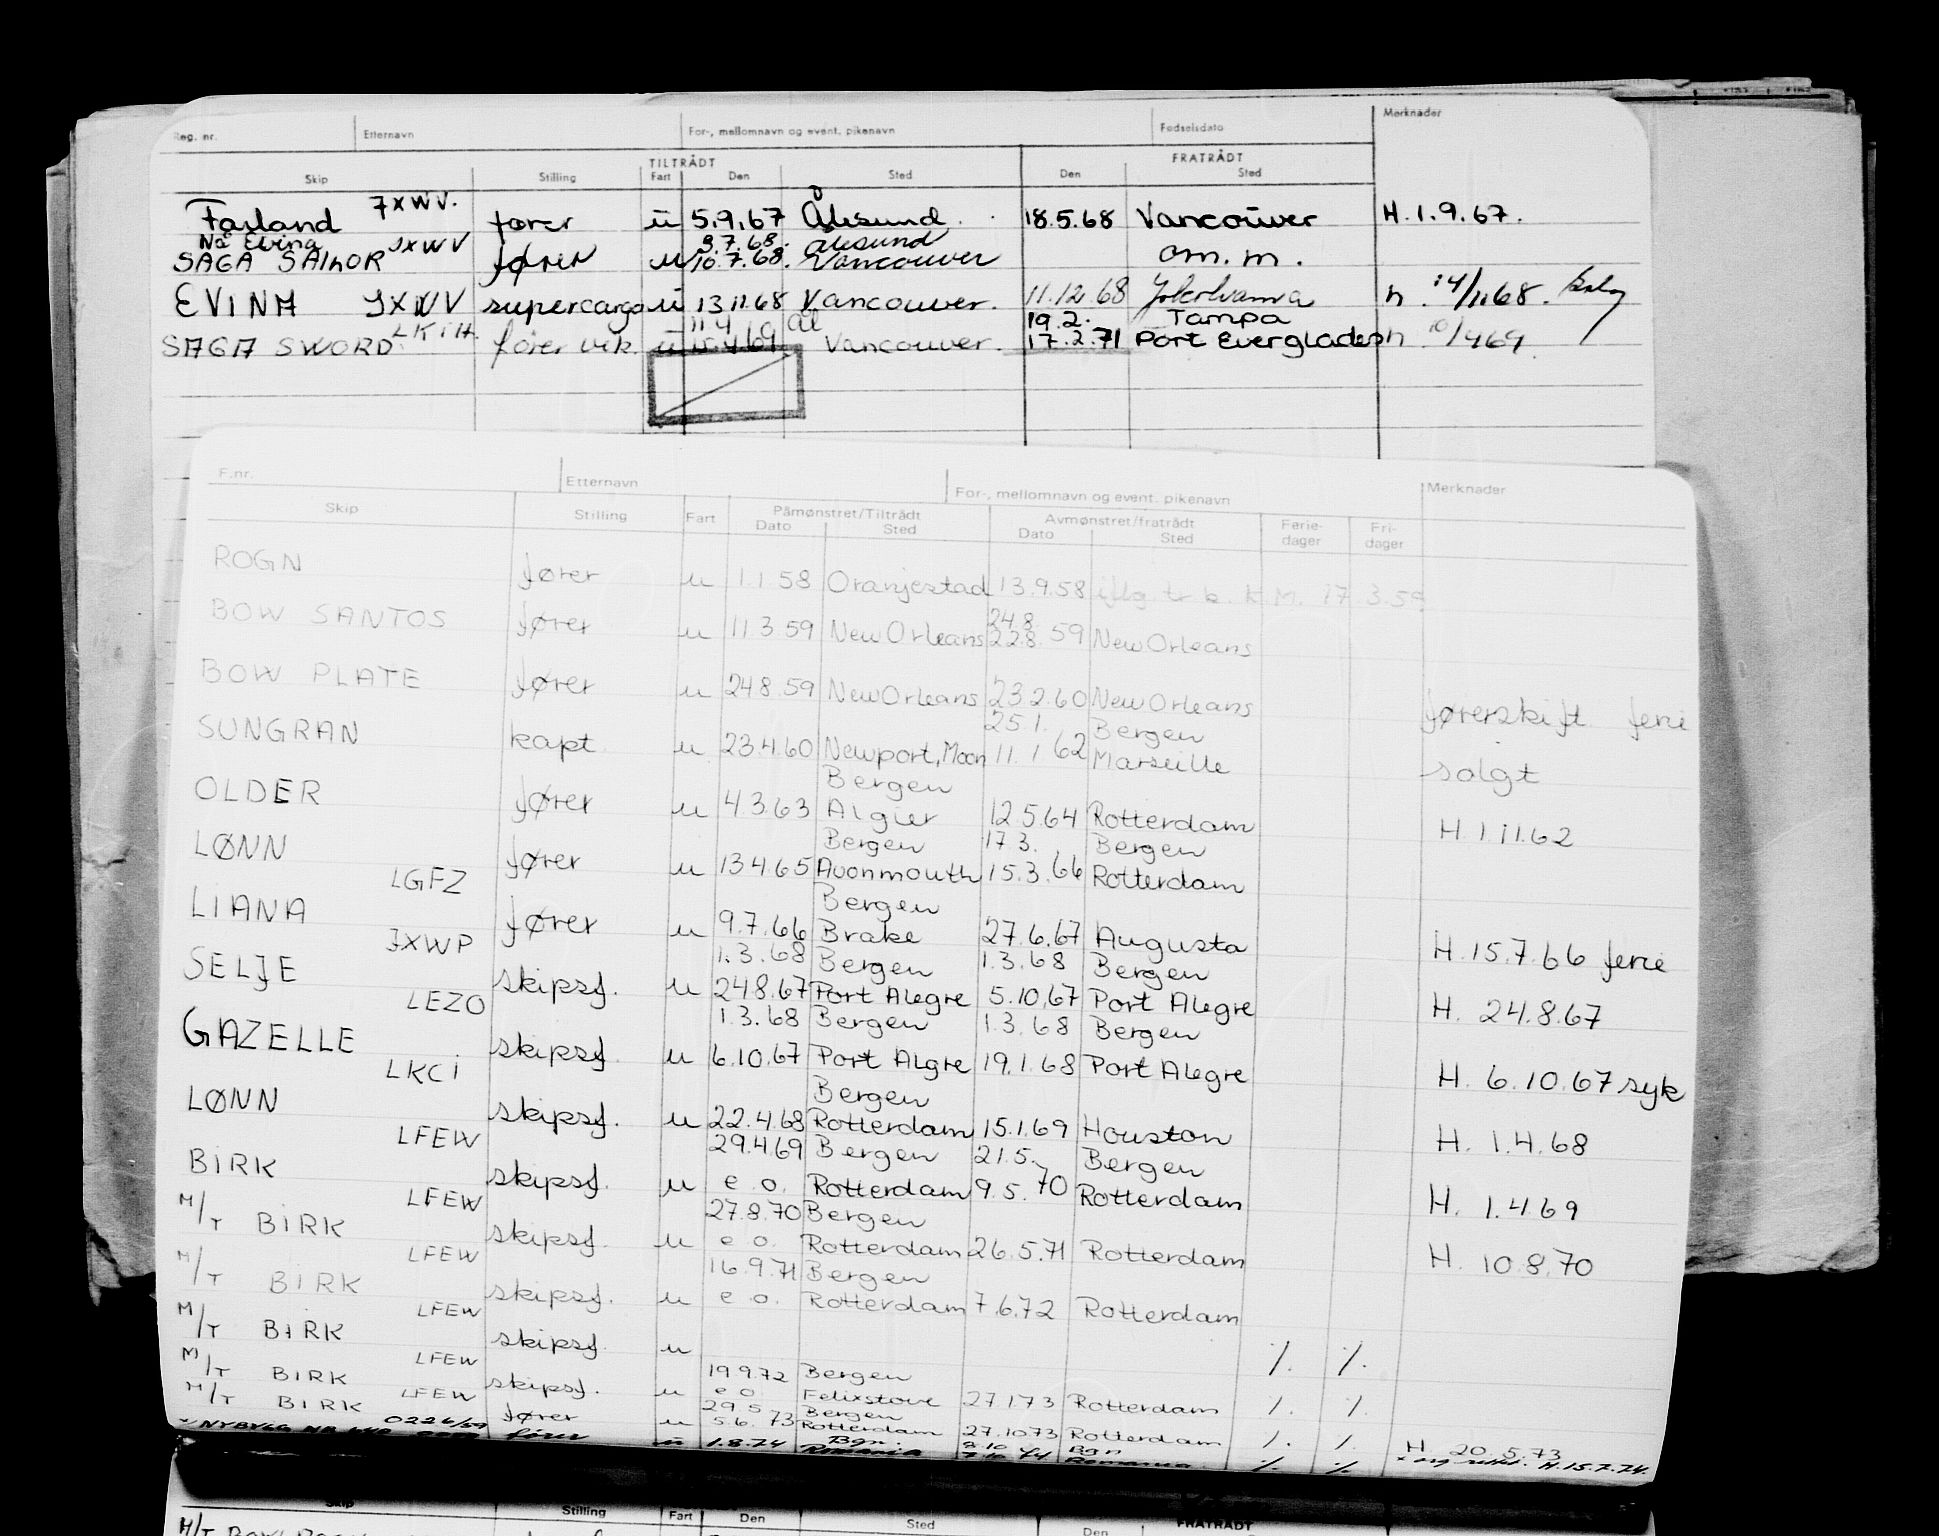 Reg. nr. Etternavn For-, mellomnavn og event. pikenavn Fødselsdato Merknader
TILTRÅDT FRATRÅDT
Skip Stilling Fart Den Sted Den Sted
Farland JXWV. fører u 5.9.67 Ålesund. 18.5.68 Vancouver H. 1.9.67.
Nå Evina 3.7.68. Ålesund
SAGA SAILOR JXWV fører u 10.7.68. Vancouver om. m.
EVINA JXWV supercargo u 13.11.68 Vancouver. 11.12.68 Yokohama h. 14/1168.
11.4 Ål 19.2. Tampa
SAGA SWORD LKIH. fører vik. u 15.4.69 Vancouver. 17.2.71 Port Everglades h 10/469.
F.nr. Etternavn For-, mellomnavn og event. pikenavn Merknader
Skip Stilling Fart Påmønstret/Tiltrådt Avmønstret/fratrådt Ferie- Fri-
Dato Sted Dato Sted dager dager
ROGN fører u 1.1.58 Oranjestad 13.9.58 iflg. tr b. K.M. 17 3.59
24.8.
BOW SANTOS fører u 11.3.59 New Orleans 22.8. 59 New Orleans
BOW PLATE fører u 24.8.59 New Orleans 23.2.60 New Orleans førerskift ferie
25.1. Bergen
SUNGRAN kapt. u 23.4.60 Newport, Mon 11.1 62 Marseille solgt
Bergen
OLDER fører u 4.3.63 Algier 12.5.64 Rotterdam H. 1.11.62
Bergen 17.3. Bergen
LØNN fører u 13.4.65 Avonmouth 15.3.66 Rotterdam
LGFZ Bergen
LIANA fører u 9.7.66 Brake 27.6.67 Augusta H. 15.7.66 ferie
JXWP 1.3.68 Bergen 1.3.68 Bergen
SELJE skipsf. u 24.8.67 Port Alegre 5.10.67 Port Alegre H. 24.8.67
LEZO 1.3.68 Bergen 1.3.68 Bergen
GAZELLE skipsf. u 6.10.67 Port Algre 19.1.68 Port Alegre H. 6.10.67 syk
LKCI Bergen
LØNN skipsf. u 22.4.68 Rotterdam 15.1.69 Houston H. 1.4.68
LFEW 29.4.69 Bergen 21.5. Bergen
BIRK skipsf. u e.o. Rotterdam 9.5.70 Rotterdam H. 1.4.69
LFEW 27.8.70 Bergen
M/T BIRK skipsf. u e.o. Rotterdam 26.5.71 Rotterdam H. 10.8.70
LFEW 16.9.71 Bergen
M/T BIRK skipsf. u e.o. Rotterdam 7.6.72 Rotterdam
LFEW
M/T BIRK skipsf. u /. /.
LFEW 19.9.72 Bergen
M/T BIRK skipsf. u e.o. Felixstove 27.1.73 Rotterdam /. /.
LFEW 29.5. Bergen
M/T BIRK fører u 5.6.73 Rotterdam 27.10.73 Rotterdam /. /. H. 20.5.73
0226/59 Bgn. Bgn
NYBYGG NR. fører u 1.8.74 Romania Romania /. /. H. 15.7.74.
Skip Stilling Fart Den Sted Den FRATRÅDT
M/T